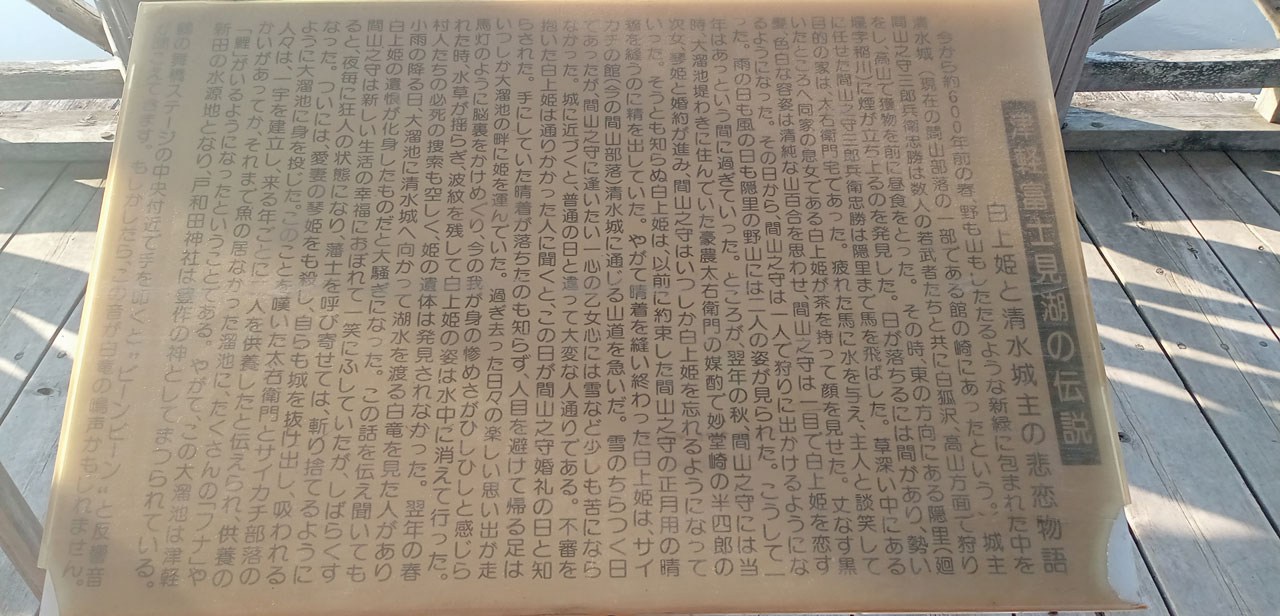 津軽富士見湖の伝説
白上姫と清水城主の悲恋物語
今から約600年前の春、野も山もしたたるような新緑に包まれた中を
清水城(現在の間山部落の一部である館の崎にあったという。)城主
間山之守三郎兵衛忠勝は数人の若武者たちと共に白狐沢、高山方面で狩り
をし、高山で獲物を前に昼食をとった。その時、東の方向にある隠里(廻
堰字稲川)に煙が立ち上るのを発見した。日が落ちるには間があり、勢い
に任せた間山之守三郎兵衛忠勝は隠里まで馬を飛ばした。草深い中にある
目的の家は、太右衛門宅であった。疲れた馬に水を与え、主人と談笑して
いたところへ同家の息女である白上姫が茶を持って顔を見せた。丈なす黒
髪、色白な容姿は清純な山百合を思わせ、間山之守は一目で白上姫を恋す
るようになった。その日から、間山之守は一人で狩りに出かけるようにな
った。雨の日も風の日も隠里の野山には二人の姿が見られた。こうして一
年はあっという間に過ぎていった。ところが、翌年の秋、間山之守には当
時、大溜池堤わきに住んでいた豪農太右衛門の媒酌で妙堂崎の半四郎の
次女、琴姫と婚約が進み、間山之守はいつしか白上姫を忘れるようになって
いった。そうとも知らぬ白上姫は、以前に約束した間山之守の正月用の晴
着を縫うのに精を出していた。やがて晴着を縫い終わった白上姫は、サイ
カチの館(今の間山部落)清水城に通じる山道を急いだ。雪のちらつく日
であったが、間山之守に逢いたい一心の乙女心には雪など少しも苦になら
なかった。城に近づくと、普通の日と違って大変な人通りである。不審を
抱いた白上姫は通りかかった人に聞くと、この日が間山之守婚礼の日と知
らされた。手にしていた晴着が落ちたのも知らず、人目を避けて帰る足は
いつしか大溜池の畔に姫を運んでいた。過ぎ去った日々の楽しい思い出が走
馬灯のように脳裏をかけめぐり、今の我が身の惨めさがひしひしと感じら
れた時、水草が揺らぎ、波紋を残して白上姫の姿は水中に消えて行った。
村人たちの必死の捜索も空しく、姫の遺体は発見されなかった。翌年の春
小雨の降る日、大溜池に清水城へ向かって湖水を渡る白竜を見た人があり
白上姫の遺恨が化身したものだと大騒ぎになった。この話を伝え聞いても
間山之守は新しい生活の幸福におぼれて一笑にふしていたが、しばらくす
ると、夜毎に狂人の状態になり、藩士を呼び寄せては、斬り捨てるように
なった。ついには、愛妻の琴姫をも殺し、自らも城を抜け出し、吸われる
ように大溜池に身を投じた。このことを嘆いた太右衛門とサイカチ部落の
人々は、一宇を建立し、来る年ごとに一人を供養したと伝えられ、供養の
かいがあってか、それまで魚の居なかった溜池に、たくさんの「フナ」や
「鯉」がいるようになったということである。やがて、この大溜池は津軽
新田の水源地となり、戸和田神社は豊作の神としてまつられている。
鶴の舞橋ステージの中央付近で手を叩くと"ビーンビーン"と反響音
が聞こえてきます。もしかしたら、この音が白竜の鳴声かもしれません。